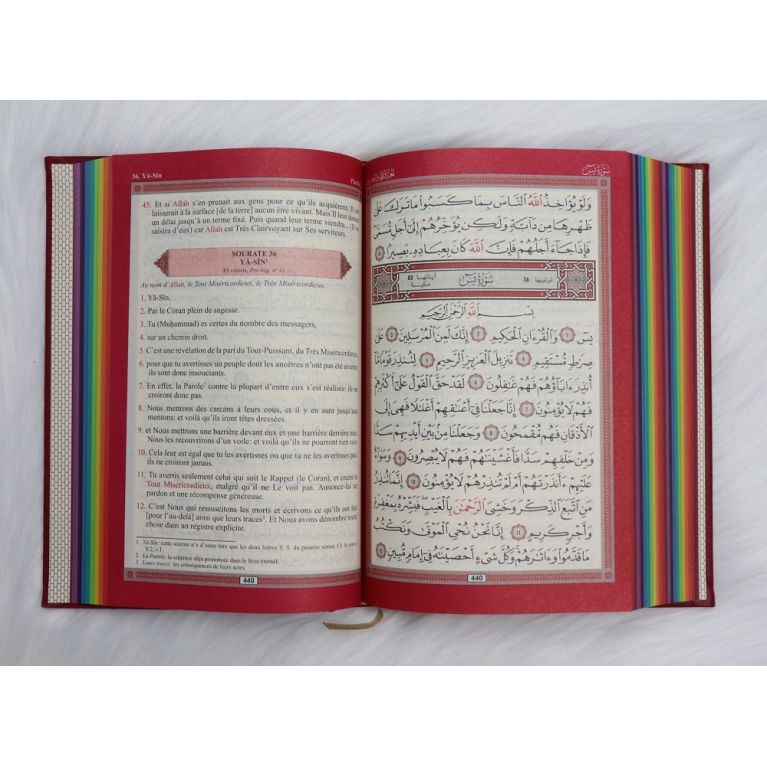 36. Yâ-Sîn
45. Et si Allah s'en prenait aux gens pour ce qu'ils acquièrent, Il ne
laisserait à la surface [de la terre] aucun être vivant. Mais Il leur donne
un délai jusqu'à un terme fixé. Puis quand leur terme viendra... (Il se
saisira d'eux) car Allah est Très Clairvoyant sur Ses serviteurs.
SOURATE 36
YÂ-SÎN¹
83 versets, Pré-hég. n° 41
Au nom d'Allah, le Tout Miséricordieux, le Très Miséricordieux.
1. Yâ-Sîn.
2. Par le Coran plein de sagesse.
3. Tu (Muhammad) es certes du nombre des messagers,
4. sur un chemin droit.
5. C'est une révélation de la part du Tout-Puissant, du Très Miséricordieux,
6. pour que tu avertisses un peuple dont les ancêtres n'ont pas été avertis:
ils sont donc insouciants.
7. En effet, la Parole² contre la plupart d'entre eux s'est réalisée: ils ne
croiront donc pas.
8. Nous mettrons des carcans à leurs cous, et il y en aura jusqu'aux
mentons: et voilà qu'ils iront têtes dressées.
9. et Nous mettrons une barrière devant eux et une barrière derrière eux;
Nous les recouvrirons d'un voile: et voilà qu'ils ne pourront rien voir.
10. Cela leur est égal que tu les avertisses ou que tu ne les avertisses pas:
ils ne croiront jamais.
11. Tu avertis seulement celui qui suit le Rappel (le Coran), et craint le
Tout Miséricordieux, malgré qu'il ne Le voit pas. Annonce-lui un
pardon et une récompense généreuse.
12. C'est Nous qui ressuscitons les morts et écrivons ce qu'ils ont fait
[pour l'au-delà] ainsi que leurs traces³. Et Nous avons dénombré toute
chose dans un registre explicite.
1. Yâ-Sîn: cette sourate n'a d'autre titre que les deux lettres Y. S. du premier verset. Cf. la note à
S.2, v.1.
2. La Parole: la sentence déjà prononcée dans le livre éternel.
3. Leurs traces: les conséquences de leurs actes.
440
سورة يس
وَلَوْ يُؤَاخِذُ ٱللَّهُ ٱلنَّاسَ بِمَا كَسَبُوا۟ مَا تَرَكَ عَلَىٰ
ظَهْرِهَا مِن دَآبَّةٍ وَلَٰكِن يُؤَخِّرُهُمْ إِلَىٰٓ أَجَلٍ مُّسَمًّى
فَإِذَا جَآءَ أَجَلُهُمْ فَإِنَّ ٱللَّهَ كَانَ بِعِبَادِهِۦ بَصِيرًۢا ٤٥
ترتيبها 36 سُورَةُ يسٓ آياتها 83 مكية
بِسْمِ ٱللَّهِ ٱلرَّحْمَٰنِ ٱلرَّحِيمِ
يسٓ ١ وَٱلْقُرْءَانِ ٱلْحَكِيمِ ٢ إِنَّكَ لَمِنَ ٱلْمُرْسَلِينَ ٣ عَلَىٰ
صِرَٰطٍ مُّسْتَقِيمٍ ٤ تَنزِيلَ ٱلْعَزِيزِ ٱلرَّحِيمِ ٥ لِتُنذِرَ قَوْمًا مَّآ
أُنذِرَ ءَابَآؤُهُمْ فَهُمْ غَٰفِلُونَ ٦ لَقَدْ حَقَّ ٱلْقَوْلُ عَلَىٰٓ أَكْثَرِهِمْ
فَهُمْ لَا يُؤْمِنُونَ ٧ إِنَّا جَعَلْنَا فِىٓ أَعْنَٰقِهِمْ أَغْلَٰلًا فَهِىَ إِلَى
ٱلْأَذْقَانِ فَهُم مُّقْمَحُونَ ٨ وَجَعَلْنَا مِنۢ بَيْنِ أَيْدِيهِمْ سَدًّا
وَمِنْ خَلْفِهِمْ سَدًّا فَأَغْشَيْنَٰهُمْ فَهُمْ لَا يُبْصِرُونَ ٩ وَسَوَآءٌ
عَلَيْهِمْ ءَأَنذَرْتَهُمْ أَمْ لَمْ تُنذِرْهُمْ لَا يُؤْمِنُونَ ١٠ إِنَّمَا تُنذِرُ
مَنِ ٱتَّبَعَ ٱلذِّكْرَ وَخَشِىَ ٱلرَّحْمَٰنَ بِٱلْغَيْبِ فَبَشِّرْهُ بِمَغْفِرَةٍ
وَأَجْرٍ كَرِيمٍ ١١ إِنَّا نَحْنُ نُحْىِ ٱلْمَوْتَىٰ وَنَكْتُبُ
مَا قَدَّمُوا۟ وَءَاثَٰرَهُمْ وَكُلَّ شَىْءٍ أَحْصَيْنَٰهُ فِىٓ إِمَامٍ مُّبِينٍ ١٢
440